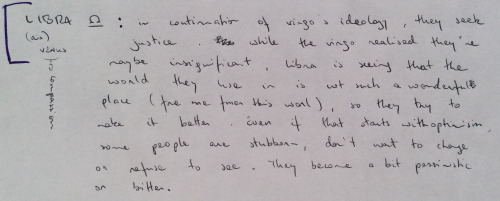 LIBRA ♎ : in continuation of virgo's ideology, they seek
(air) justice. while the virgo realised they're
venus maybe insignificant, libra is seeing that the
world they live in is not such a wonderful
place (free me from this world), so they try to
make it better. even if that starts with optimism,
some people are stubborn, don't want to change
or refuse to see. They become a bit pessimistic
or bitter.